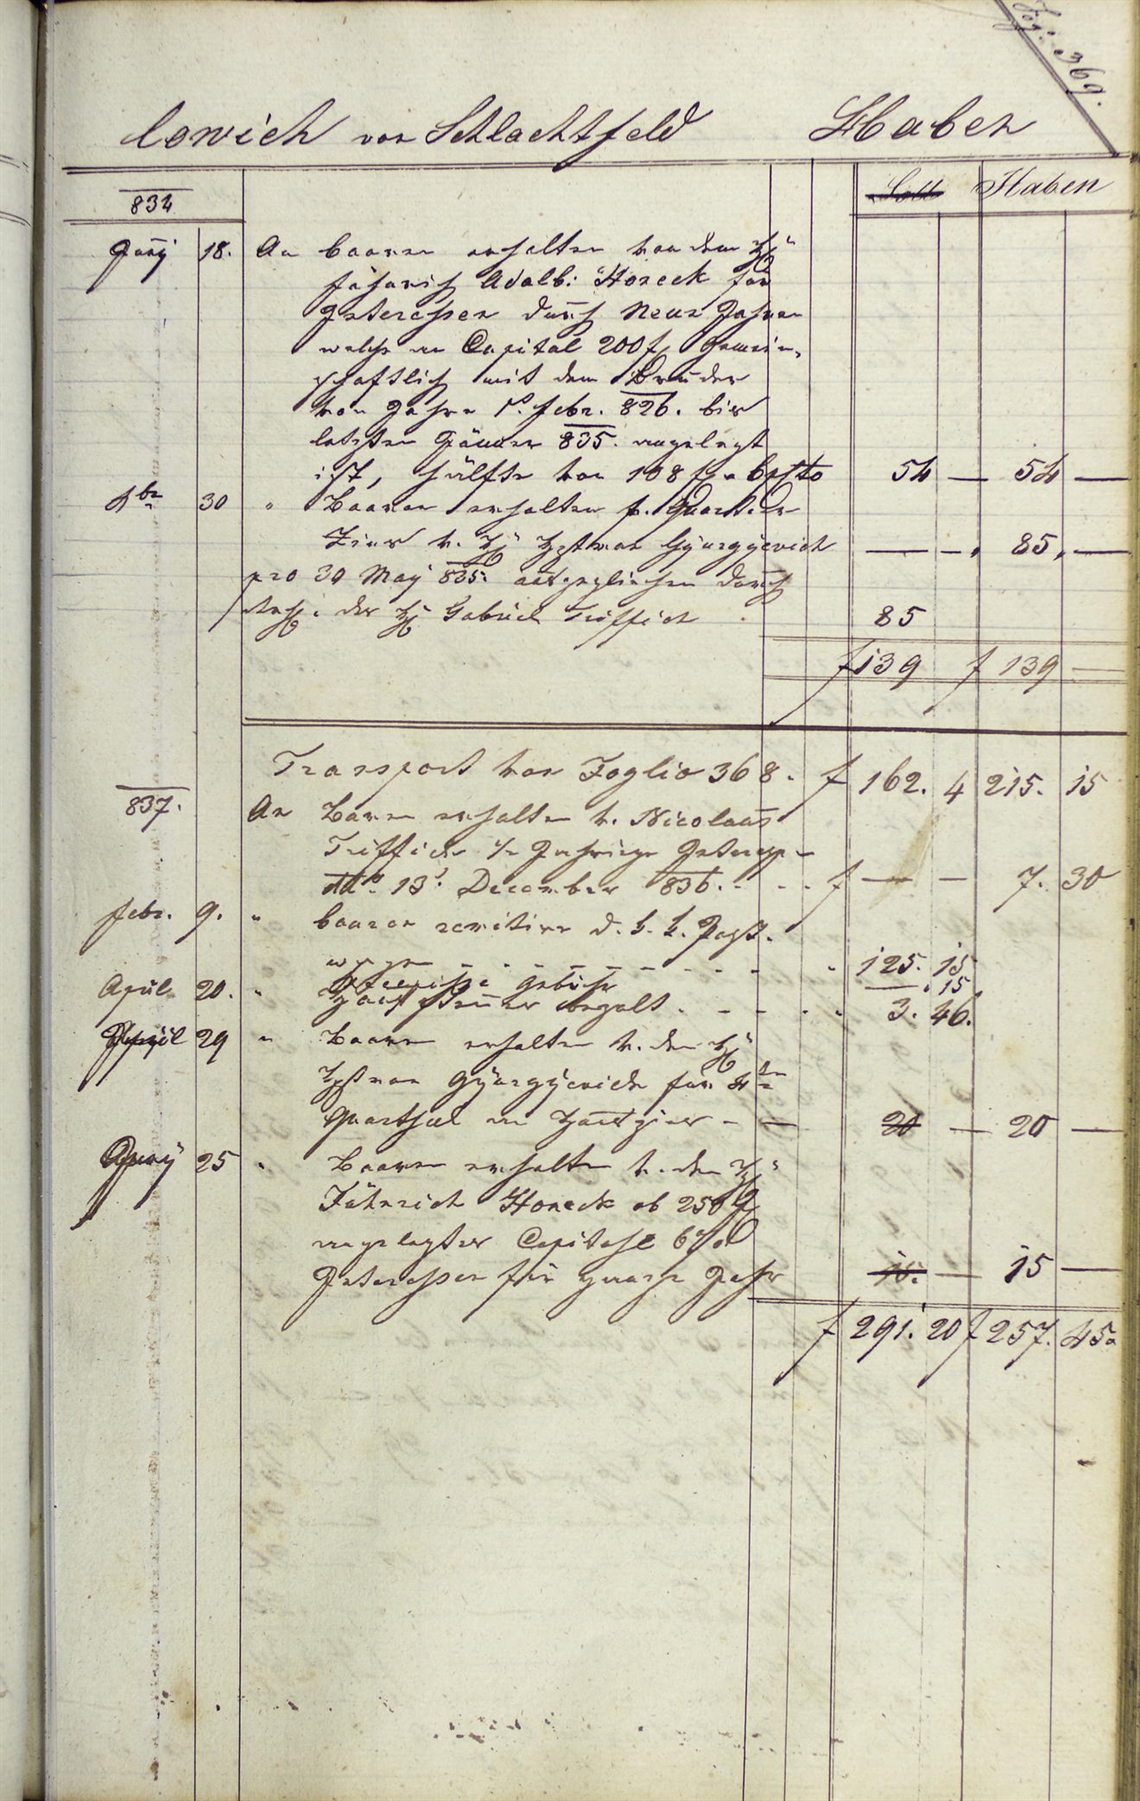 Fog: 369.
lowich von Schlachtfeld Haben
834 Soll Haben
Junÿ 18. An baaren erhalten von dem H.
Fähnrich Adalb: Horeck für
Interessen durch Neun Jahren
welche an Capital 200 f gemein-
schaftlich mit dem Bruder
von Jahre 1. Febr. 826. bis
letzten Jänner 835. angelegt
ist, hälfte von 108 f 54 — 54 —
30 " Baaren erhalten f. Quartier
Zins v. H. Hptman Gyurgyevich — — 85. —
pro 30 Maÿ 835. durch
der H. Gabriel Triffich 85
f 139 f 139 —
Transport von Foglio 368. f 162. 4 215. 15
837. An Baren erhalten v. Nicolaus
Triffich Interessen
ddo 13. December 836. - - f — — 7. 30
Febr. 9. " baaren d. k. k. Post-
wagen - - - 125. 15
gebühr — 15
April 20. " Haus Steuer bezalt. - - - 3. 46.
April 29 " Baaren erhalten v. den H.
Hptman Gyurgyevich für 4
Quarthal an Hauszins - — 20 — 20 —
25 " Baaren erhalten v. den H.
Fähnrich Horeck ob 250 f
angelegter Capitahl 6 %
Interessen für ganze Jahr 15. — 15 —
f 291. 20 f 257. 45